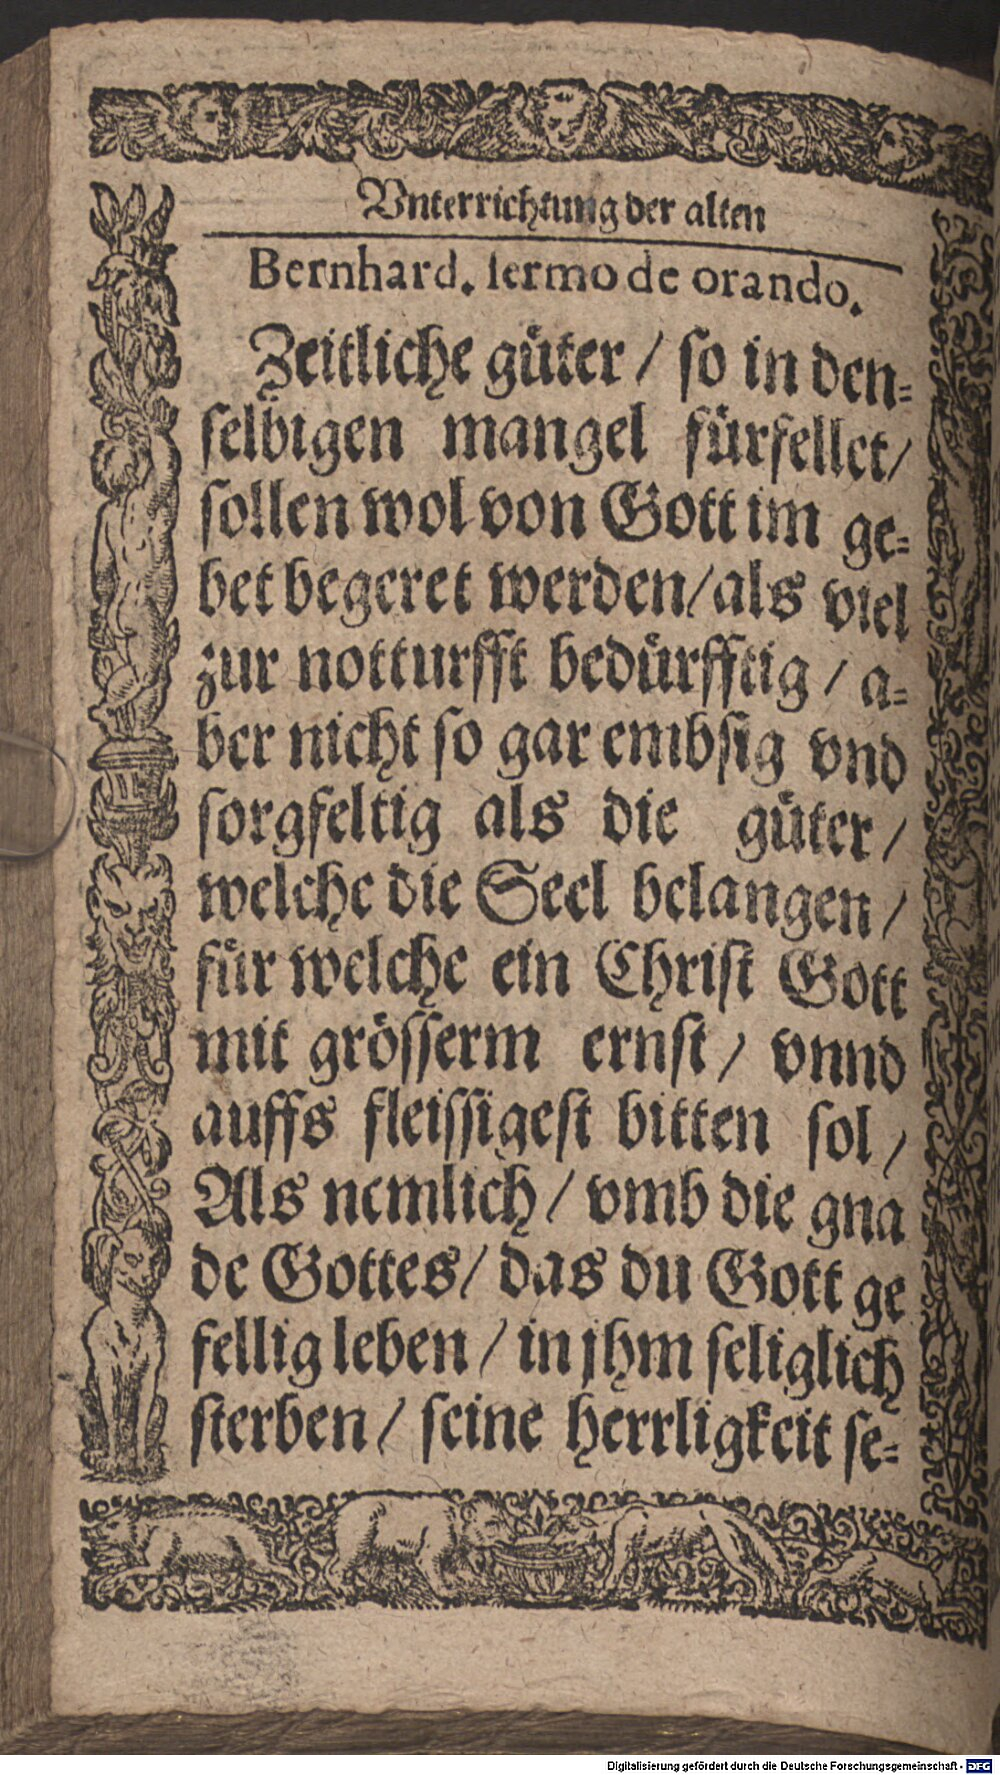 Vnterrichtung der alten
Bernhard. sermo de orando.
Zeitliche güter / so in den-
selbigen mangel fürfellet /
sollen wol von Gott im ge-
bet begeret werden / als viel
zur notturfft bedürfftig / a-
ber nicht so gar embsig vnd
sorgfeltig als die güter /
welche die Seel belangen /
für welche ein Christ Gott
mit grösserm ernst / vnnd
auffs fleissigest bitten sol /
Als nemlich / vmb die gna
de Gottes / das du Gott ge
fellig leben / in jhm seliglich
sterben / seine herrligkeit se-
Digitalisierung gefördert durch die Deutsche Forschungsgemeinschaft - DFG